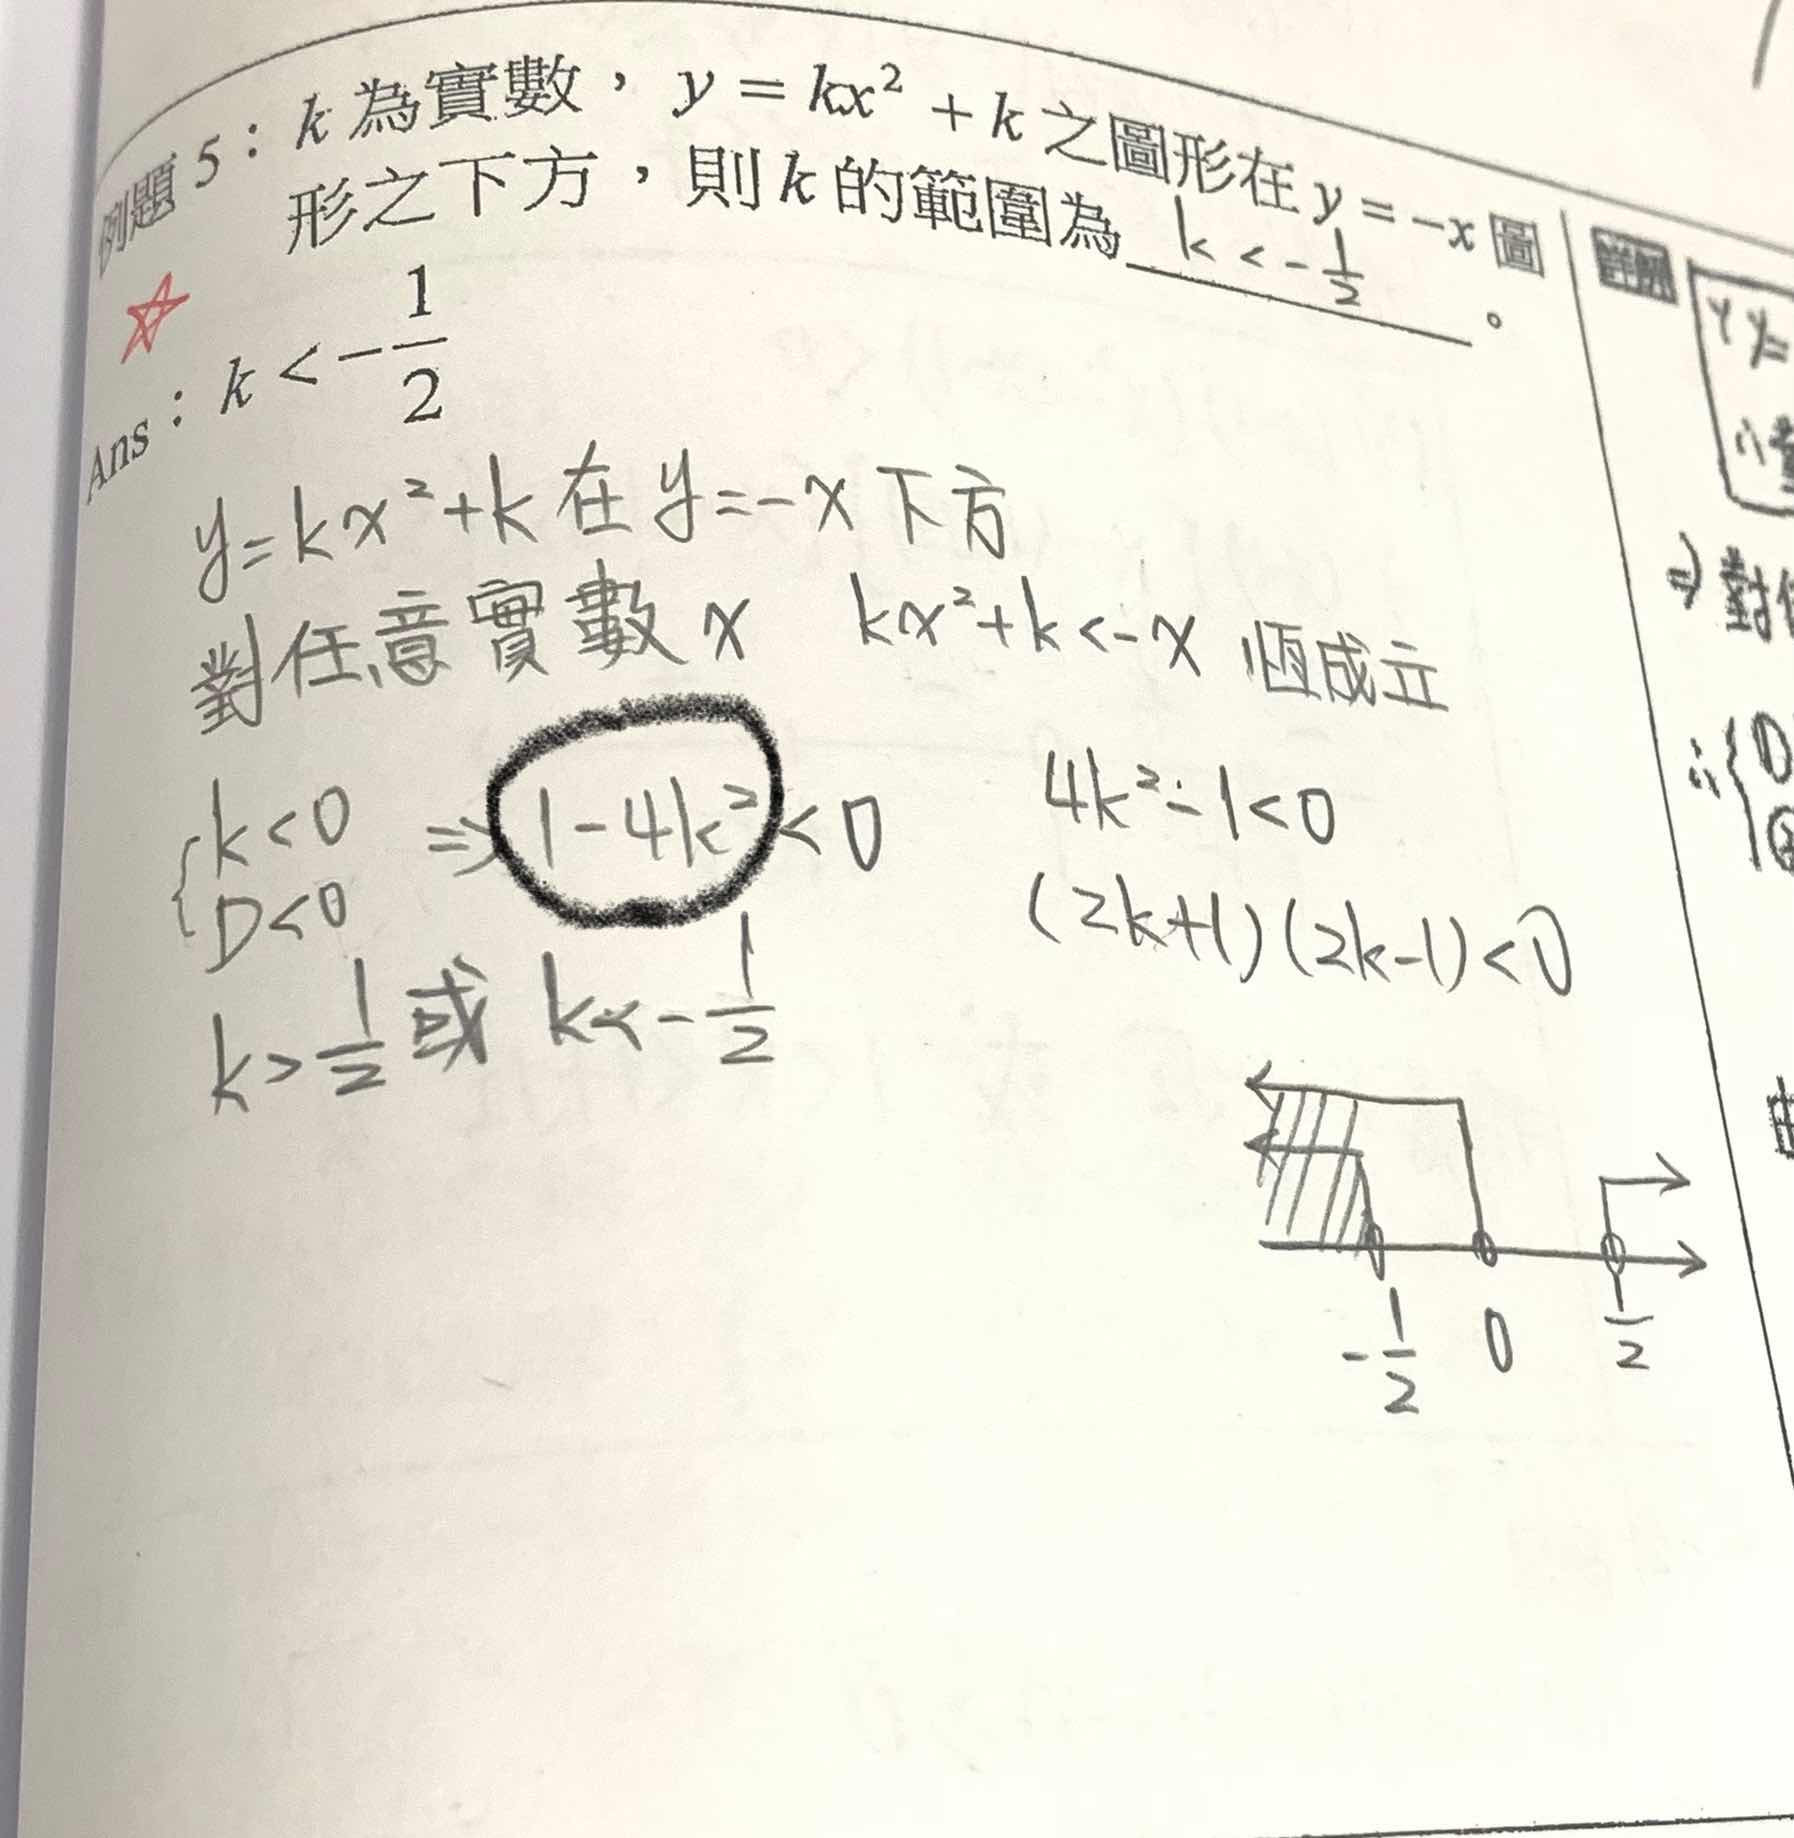 例題 5:k 為實數,y = kx² + k 之圖形在 y = -x 圖
形之下方,則 k 的範圍為 k < -1/2 。
詳解
Ans:k < -1/2
y=kx²+k 在 y=-x 下方
對任意實數 x kx²+k<-x 恆成立
k<0
D<0
⇒ 1-4k² < 0
k>1/2 或 k<-1/2
4k²-1<0
(2k+1)(2k-1)<0
-1/2 0 1/2
y=
⇒ 對